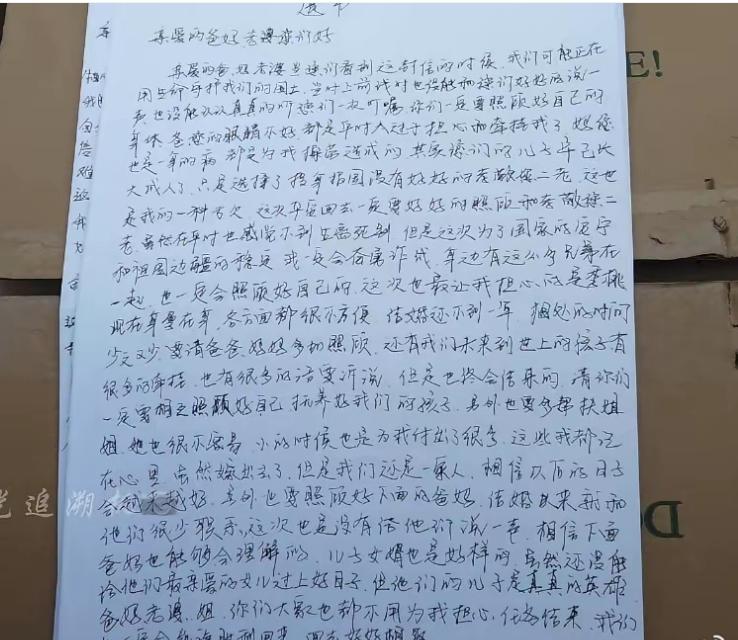 遗书
亲爱的爸妈老婆你们好
亲爱的爸、妈老婆当你们看到这封信的时候，我们可能正在
用生命守护我们的国土，当时上前线时也没能和你们好好的说一
声，也没能认认真真的叮嘱你们一次，你们一定要照顾好自己的
身体，爸您的眼睛不好都是平时太过于担心和牵挂我了，妈您
也是一身的病都是为我操劳造成的，其实你们的儿子早已长
大成人了，只是选择了报身祖国没有好好的孝敬您二老，这也
是我的一种亏欠，这次平安回去一定要好好的照顾和孝敬您二
老，虽然在平时也感觉不到生离死别，但是这次为了国家的安宁
和祖国边疆的稳定，我一定会奋勇作战，身边有这么多兄弟在
一起，也一定会照顾好自己的，这次也最让我担心的是
现在身重在身，各方面都很不方便，结婚还不到一年，相处的时间
少之又少，要请爸爸、妈妈多加照顾，还有我们未来到世上的孩子，有
很多的牵挂，也有很多的话要诉说，但是也终会结束的，请你们
一定要相互照顾好自己，抚养好我们的孩子，另外也要多帮扶姐
姐，她也很不容易，小的时候也是为我付出了很多，这些我都记
在心里，虽然嫁出去了，但是我们还是一家人，相信以后的日子
会越来越好，另外也要照顾好下面的爸妈，结婚以来我和
他们很少联系，这次也是没有给他们说一声，相信下面
爸妈也能够会理解的，儿子女婿也是好样的，虽然还没能
给他们最亲爱的女儿过上好日子，但他们的儿子是真真的英雄，
爸妈老婆、姐，你们大家也都不用为我担心，任务结束，我们
一定会
追溯
E!